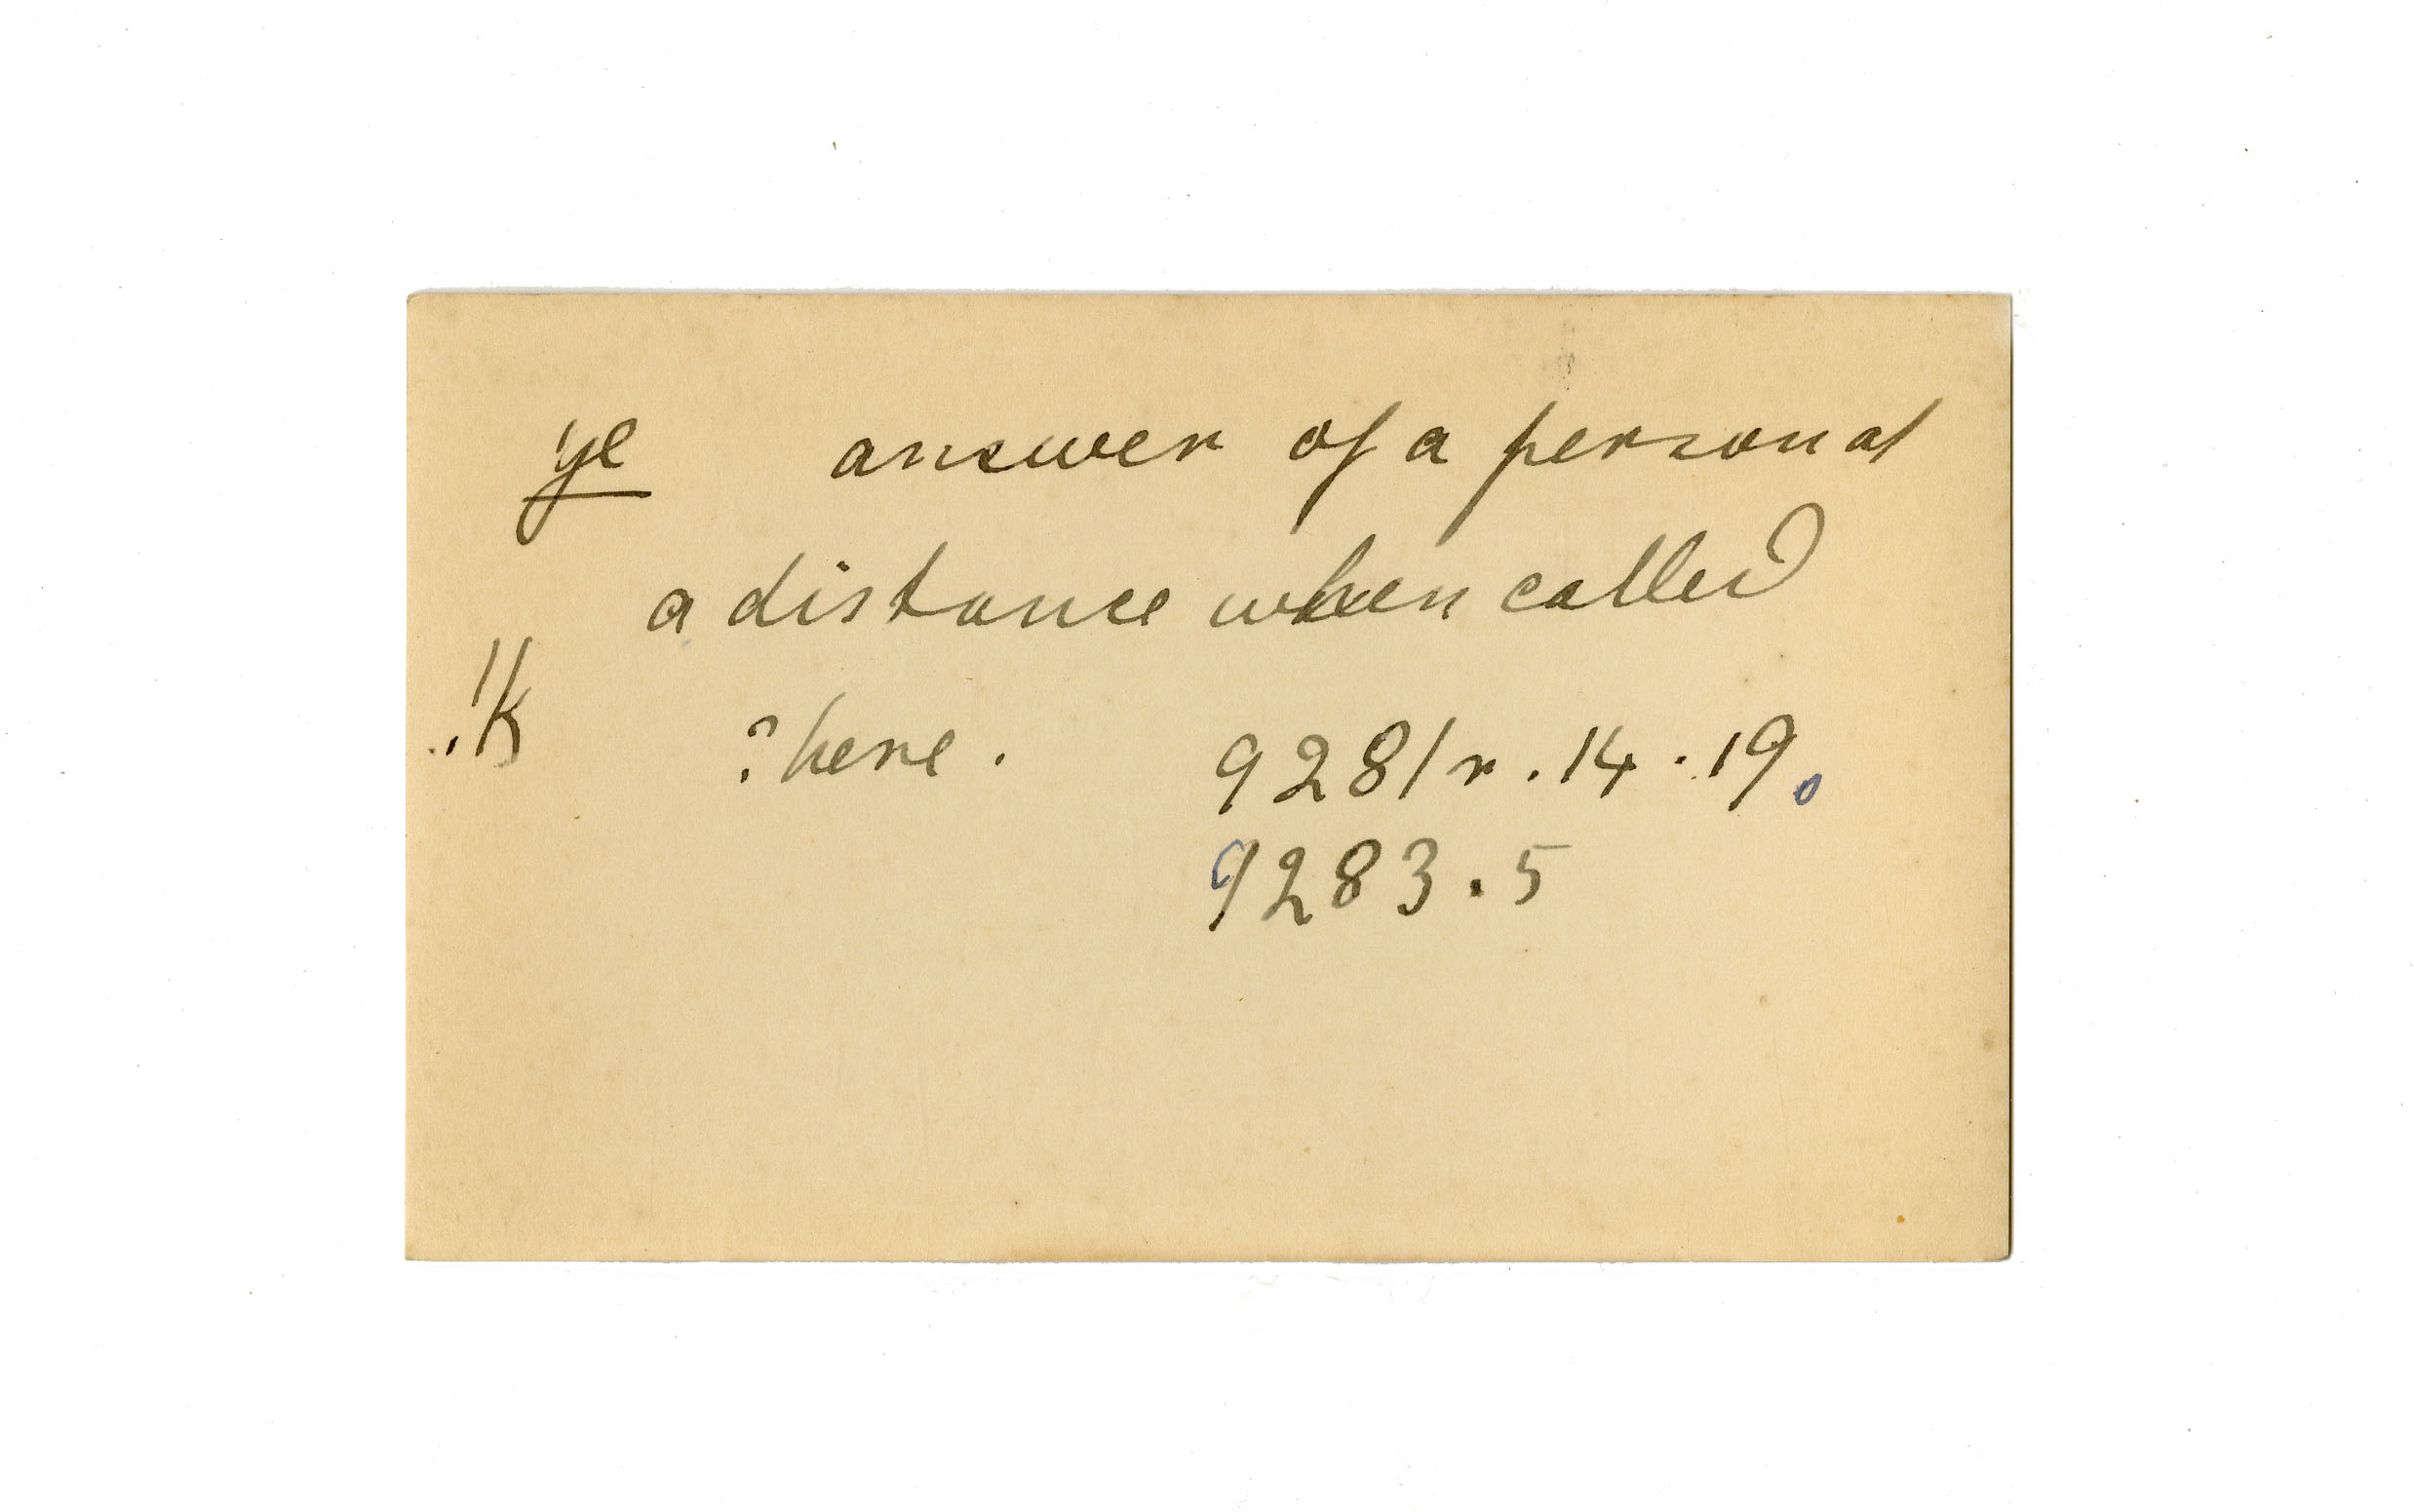 ye answer of a person at
a distance when called
!k ? here . 9281r . 14 . 19.
9283 . 5